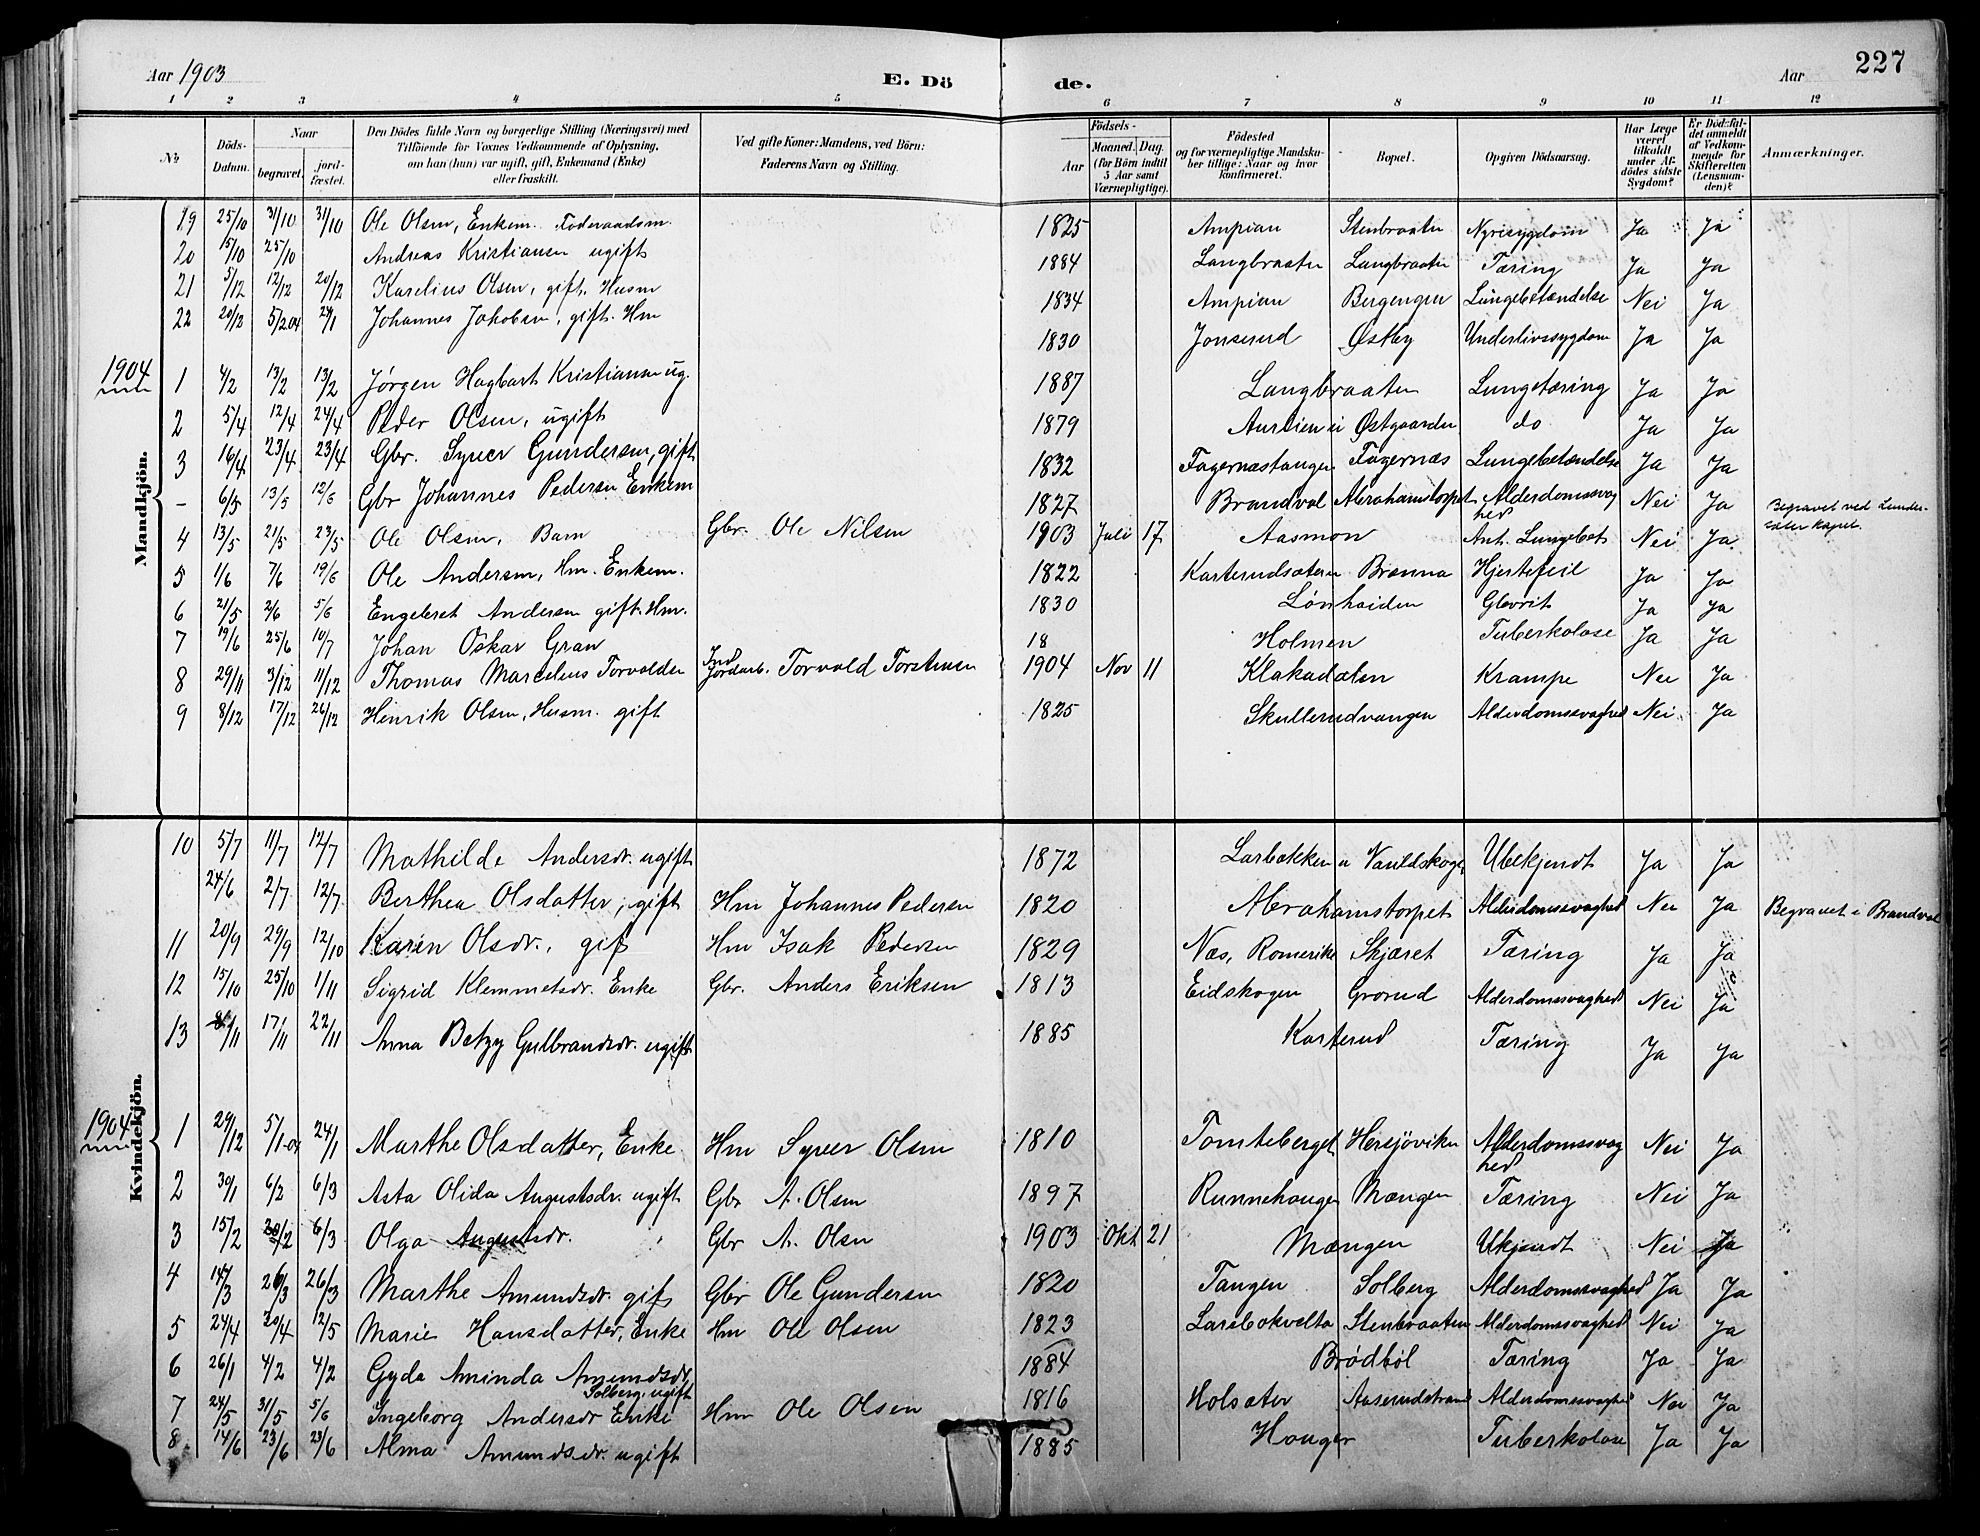 Aar 1903 E. Dö de. Aar 227
1 2 3 4 5 6 7 8 9 10 11 12
№ Döds-Datum. Naar begravet. jord-fæstet. Den Dödes fulde Navn og borgerlige Stilling (Næringsvei) med Tilföiende for Voxnes Vedkommende af Oplysning, om han (hun) var ugift, gift, Enkemand (Enke) eller fraskilt. Ved gifte Koner: Mandens, ved Börn: Faderens Navn og Stilling. Födsels- Aar Maaned. Dag. (for Börn indtil 5 Aar samt Værnepligtige). Födested og for værnepligtige Mandska-ber tillige: Naar og hvor konfirmeret. Bopæl. Opgiven Dödsaarsag. Har Læge været tilkaldt under Af-dödes sidste Sygdom? Er Dödsfal-det anmeldt af Vedkom-mende for Skifteretten (Lensman-den)? Anmærkninger.
Mandkjön.
19 25/10 31/10 31/10 Ole Olsen, Enkem. Föderaadsm. 1825 Ampian Stenbraaten Nyresygdom Ja Ja
20 15/10 25/10 Andreas Kristiansen ugift 1884 Langbraaten Langbraaten Tæring Ja Ja
21 5/12 12/12 20/12 Karelius Olsen, gift. Husm 1834 Ampian Bergengrer Lungebetændelse Nei Ja
22 20/12 5/2.04 24/1 Johannes Jakobsen, gift. Hm 1830 Jonserud Østby Underlivssygdom Ja Ja
1904
1 4/2 13/2 13/2 Jørgen Hagbart Kristiansen ug. 1887 Langbraaten Lungetæring Ja Ja
2 5/4 12/4 24/4 Peder Olsen, ugift 1879 Aurlien i Østgaarden do Ja Ja
3 16/4 23/4 23/4 Gbr. Syver Gundersen, gift 1832 Fagernæstangen Fagernæs Lungebetændelse Ja Ja
- 6/5 13/5 12/6 Gbr Johannes Pedersen Enkem 1827 Brandval Abrahamstorpet Alderdomssvaghed Nei Ja Begravet ved Lundersæter Kapel.
4 13/5 21/5 23/5 Ole Olsen, Barn Gbr. Ole Nilsen 1903 Juli 17 Aasmon Ant. Lungebet Nei Ja.
5 1/6 7/6 19/6 Ole Andersen, Hm. Enkem. 1822 Karterudsæteren Brænna Hjertefeil Ja Ja
6 21/5 2/6 5/6 Engebret Andersen gift. Hm. 1830 Lønhaiden Ja Ja
7 19/6 25/6 10/7 Johan Oskar Gran 18 Holmen Tuberkolose Ja Ja
8 29/11 3/12 11/12 Thomas Marcelius Torvaldsen Ind Jordarb. Torvald Torstensen 1904 Nov 11 Klakadalen Krampe Nei Ja
9 8/12 17/12 26/12 Henrik Olsen, Husm. gift 1825 Skullerudvangen Alderdomssvaghed Nei Ja
Kvindekjön.
10 5/7 11/7 12/7 Mathilde Andersdr. ugift 1872 Larbakken Varildskogen Ubekjendt Ja Ja
24/6 2/7 12/7 Berthea Olsdatter, gift Hm Johannes Pedersen 1820 Abrahamstorpet Alderdomssvaghed Nei Ja Begravet i Brandval
11 20/9 29/9 12/10 Karen Olsdr., gift Hm Isak Pedersen 1829 Næs, Romerike Skjæret Tæring Ja Ja
12 15/10 25/10 1/11 Sigrid Klemmetsdr. Enke Gbr. Anders Eriksen 1813 Eidskogen Grorud Alderdomssvaghed Nei Ja
13 8/11 17/11 22/11 Anna Betzy Gulbrandsdr. ugift 1885 Karterud Tæring Ja Ja
1904
1 29/12 5/1-04 24/1 Marthe Olsdatter, Enke Hm Syver Olsen 1810 Tomteberget Hersjöviken Alderdomssvaghed Nei Ja
2 30/1 6/2 6/3 Asta Olida Augustsdr. ugift Gbr A. Olsen 1897 Runnehaugen Mangen Tæring Nei Ja
3 15/2 20/2 6/3 Olga Augustsdr. Gbr A. Olsen 1903 Okt 21 Mangen Ukjendt Nei Ja
4 14/3 26/3 26/3 Marthe Amundsdr. gift Gbr Ole Gundersen 1820 Tangen Solberg Alderdomssvaghed Ja Ja
5 24/4 30/4 12/5 Marie Hansdatter, Enke Hm Ole Olsen 1823 Larsbakvelta Stenbraaten Alderdomssvaghed Nei Ja
6 26/1 4/2 4/2 Gyda Aminda Amundsdr. Solberg, ugift 1884 Brødbøl Tæring Ja Ja
7 24/5 31/5 5/6 Ingeborg Andersdr Enke Hm Ole Olsen 1816 Holsæter Aaserudstrand Alderdomssvaghed Nei Ja
8 14/6 23/6 23/6 Alma Amundsdr. ugift 1885 Houger Tuberkolose Ja Ja